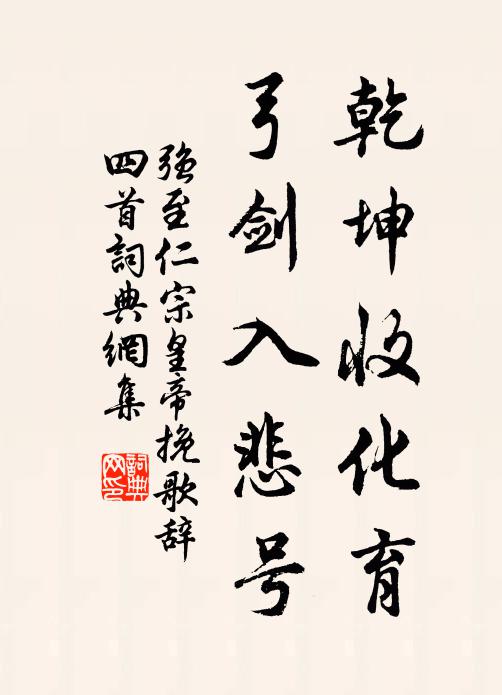 乾坤收化育
弓剑入悲号
强至仁宗皇帝挽歌辞
四首詞典網集
詞典
网印